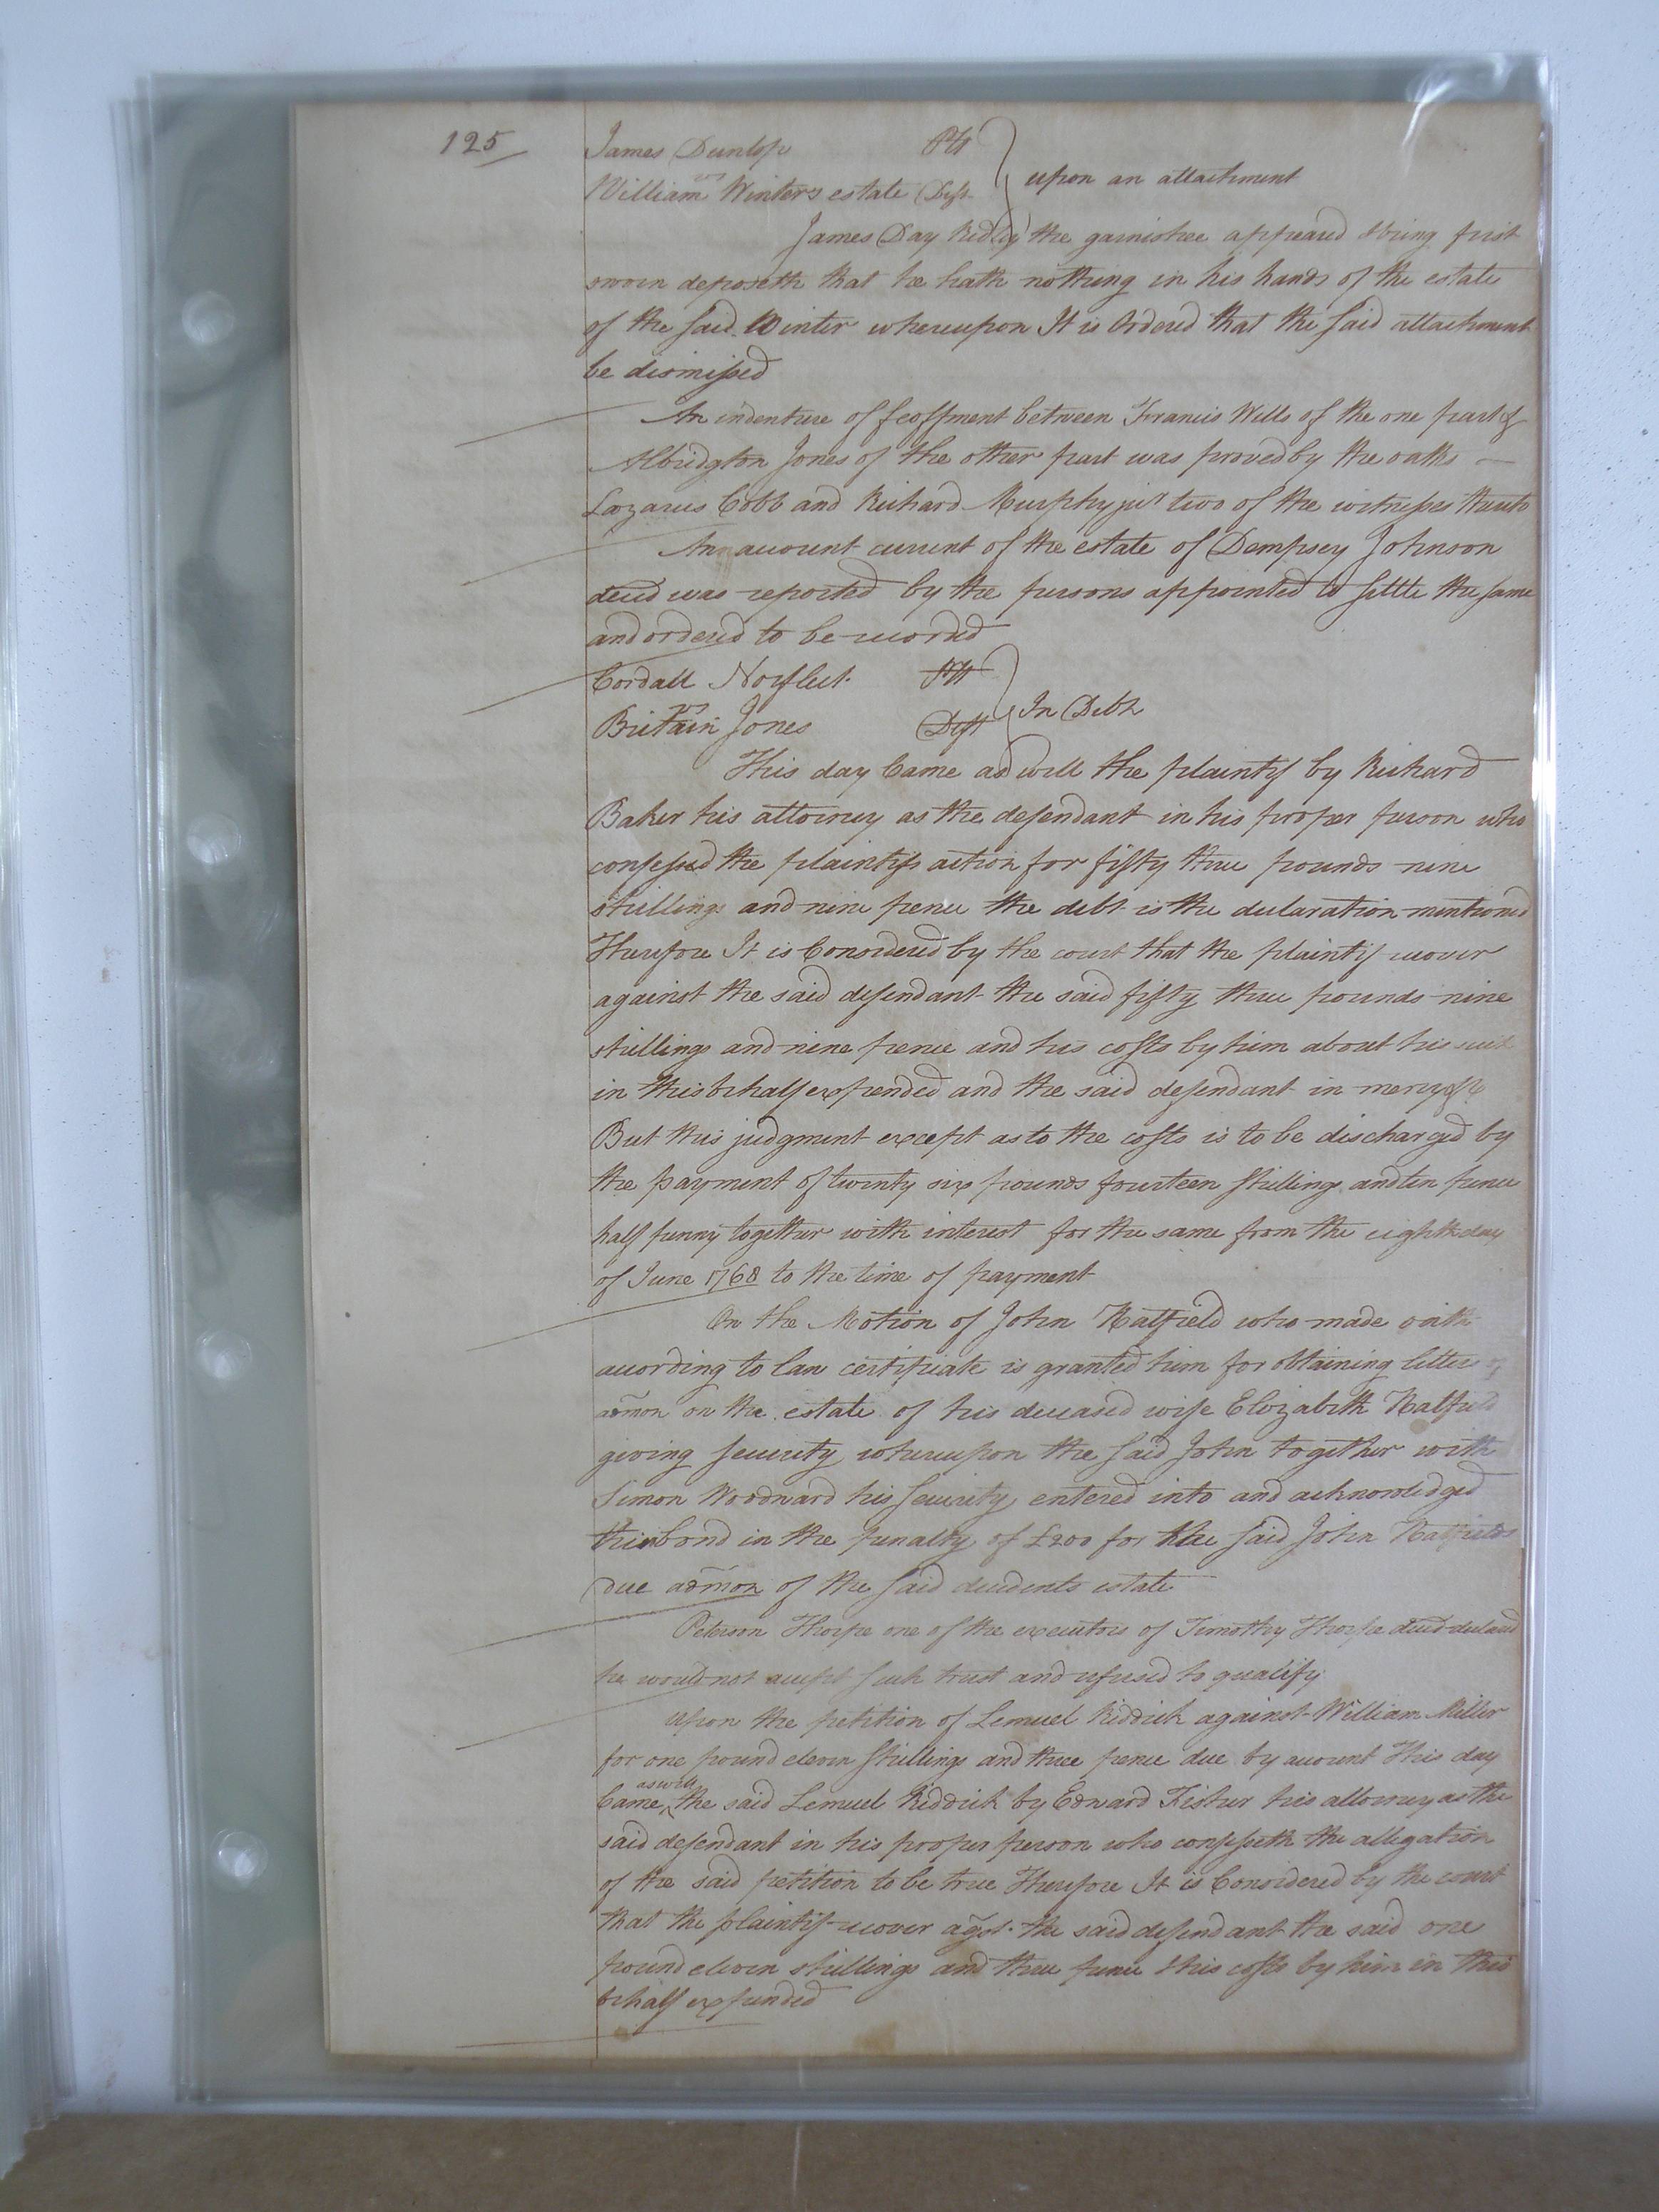 125
James Dunlop Plt
vs
William Winters estate Deft
upon an attachment
James Day Ridley the garnishee appeared & being first
sworn deposeth that he hath nothing in his hands of the estate
of the said Winter whereupon It is Ordered that the said attachment
be dismissed
An indenture of feoffment between Francis Wills of the one part &
Albridgton Jones of the other part was proved by the oaths
Lazarus Cobb and Richard Murphy junr two of the witnesses thereto
An account current of the estate of Dempsey Johnson
decd was reported by the persons appointed to settle the same
and ordered to be recorded
Cordall Norfleet Plt
vs
Britain Jones Deft
In Debt
This day Came as well the plaintif by Richard
Baker his attorney as the defendant in his proper person who
confessed the plaintifs action for fifty three pounds nine
shillings and nine pence the debt is the declaration mentioned
Therefore It is Considered by the court that the plaintif recover
against the said defendant the said fifty three pounds nine
shillings and nine pence and his costs by him about his suit
in this behalf expended and the said defendant in mercy &c
But this judgment except as to the costs is to be discharged by
the payment of twenty six pounds fourteen shillings and ten pence
half penny together with interest for the same from the eighth day
of June 1768 to the time of payment
On the Motion of John Hatfield who made oath
according to law certificate is granted him for obtaining letters of
admon on the estate of his deceased wife Elizabeth Hatfield
giving security whereupon the said John together with
Simon Woodward his security entered into and acknowledged
their bond in the penalty of £200 for the said John Hatfields
due admon of the said decedents estate
Peterson Thorpe one of the executors of Timothy Thorpe decd declared
he would not accept such trust and refused to qualify
Upon the petition of Lemuel Riddick against William Miller
for one pound eleven shillings and three pence due by account This day
as well
Came the said Lemuel Riddick by Edward Fisher his attorney as the
said defendant in his proper person who confesseth the allegation
of the said petition to be true Therefore It is Considered by the court
that the plaintif recover agst. the said defendant the said one
pound eleven shillings and three pence & his costs by him in this
behalf expended